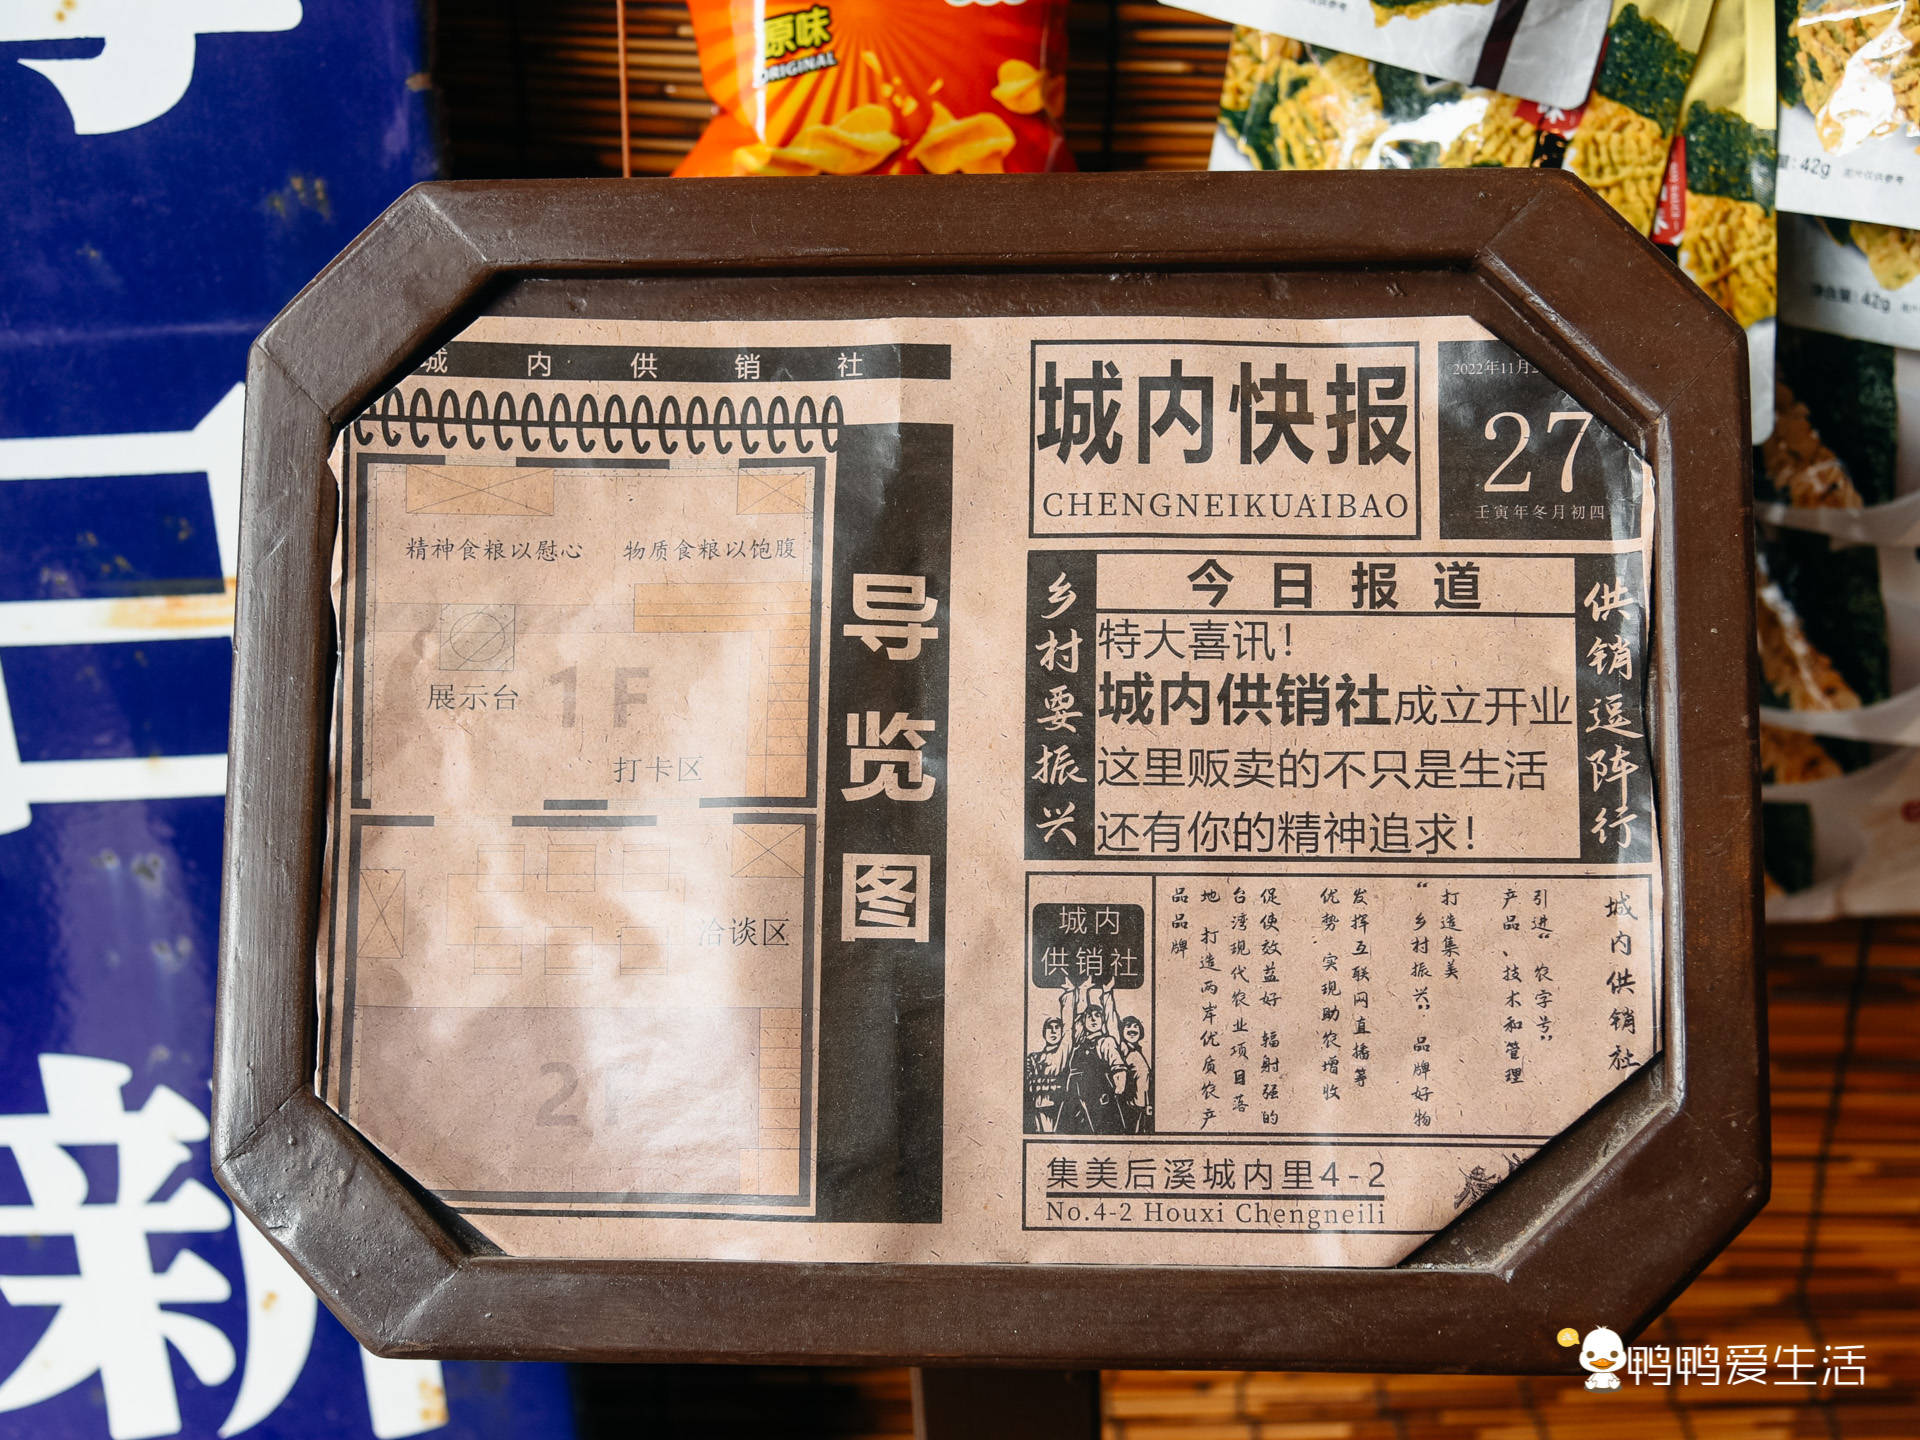 原味
ORIGINAL
42g
42g
新
城内供销社
精神食粮以慰心
物质食粮以饱腹
展示台
1F
打卡区
洽谈区
导览图
城内快报
CHENGNEIKUAIBAO
2022年11月
27
壬寅年冬月初四
乡村要振兴
今日报道
特大喜讯！
城内供销社成立开业
这里贩卖的不只是生活
还有你的精神追求！
供销逗阵行
城内供销社
城内供销社
引进“农字号”
产品、技术和管理
打造集美
“乡村振兴”品牌好物
发挥互联网直播等
优势 实现助农增收
促使效益好 辐射强的
台湾现代农业项目落
地 打造两岸优质农产
品品牌
集美后溪城内里4-2
No.4-2 Houxi Chengneili
鸭鸭爱生活